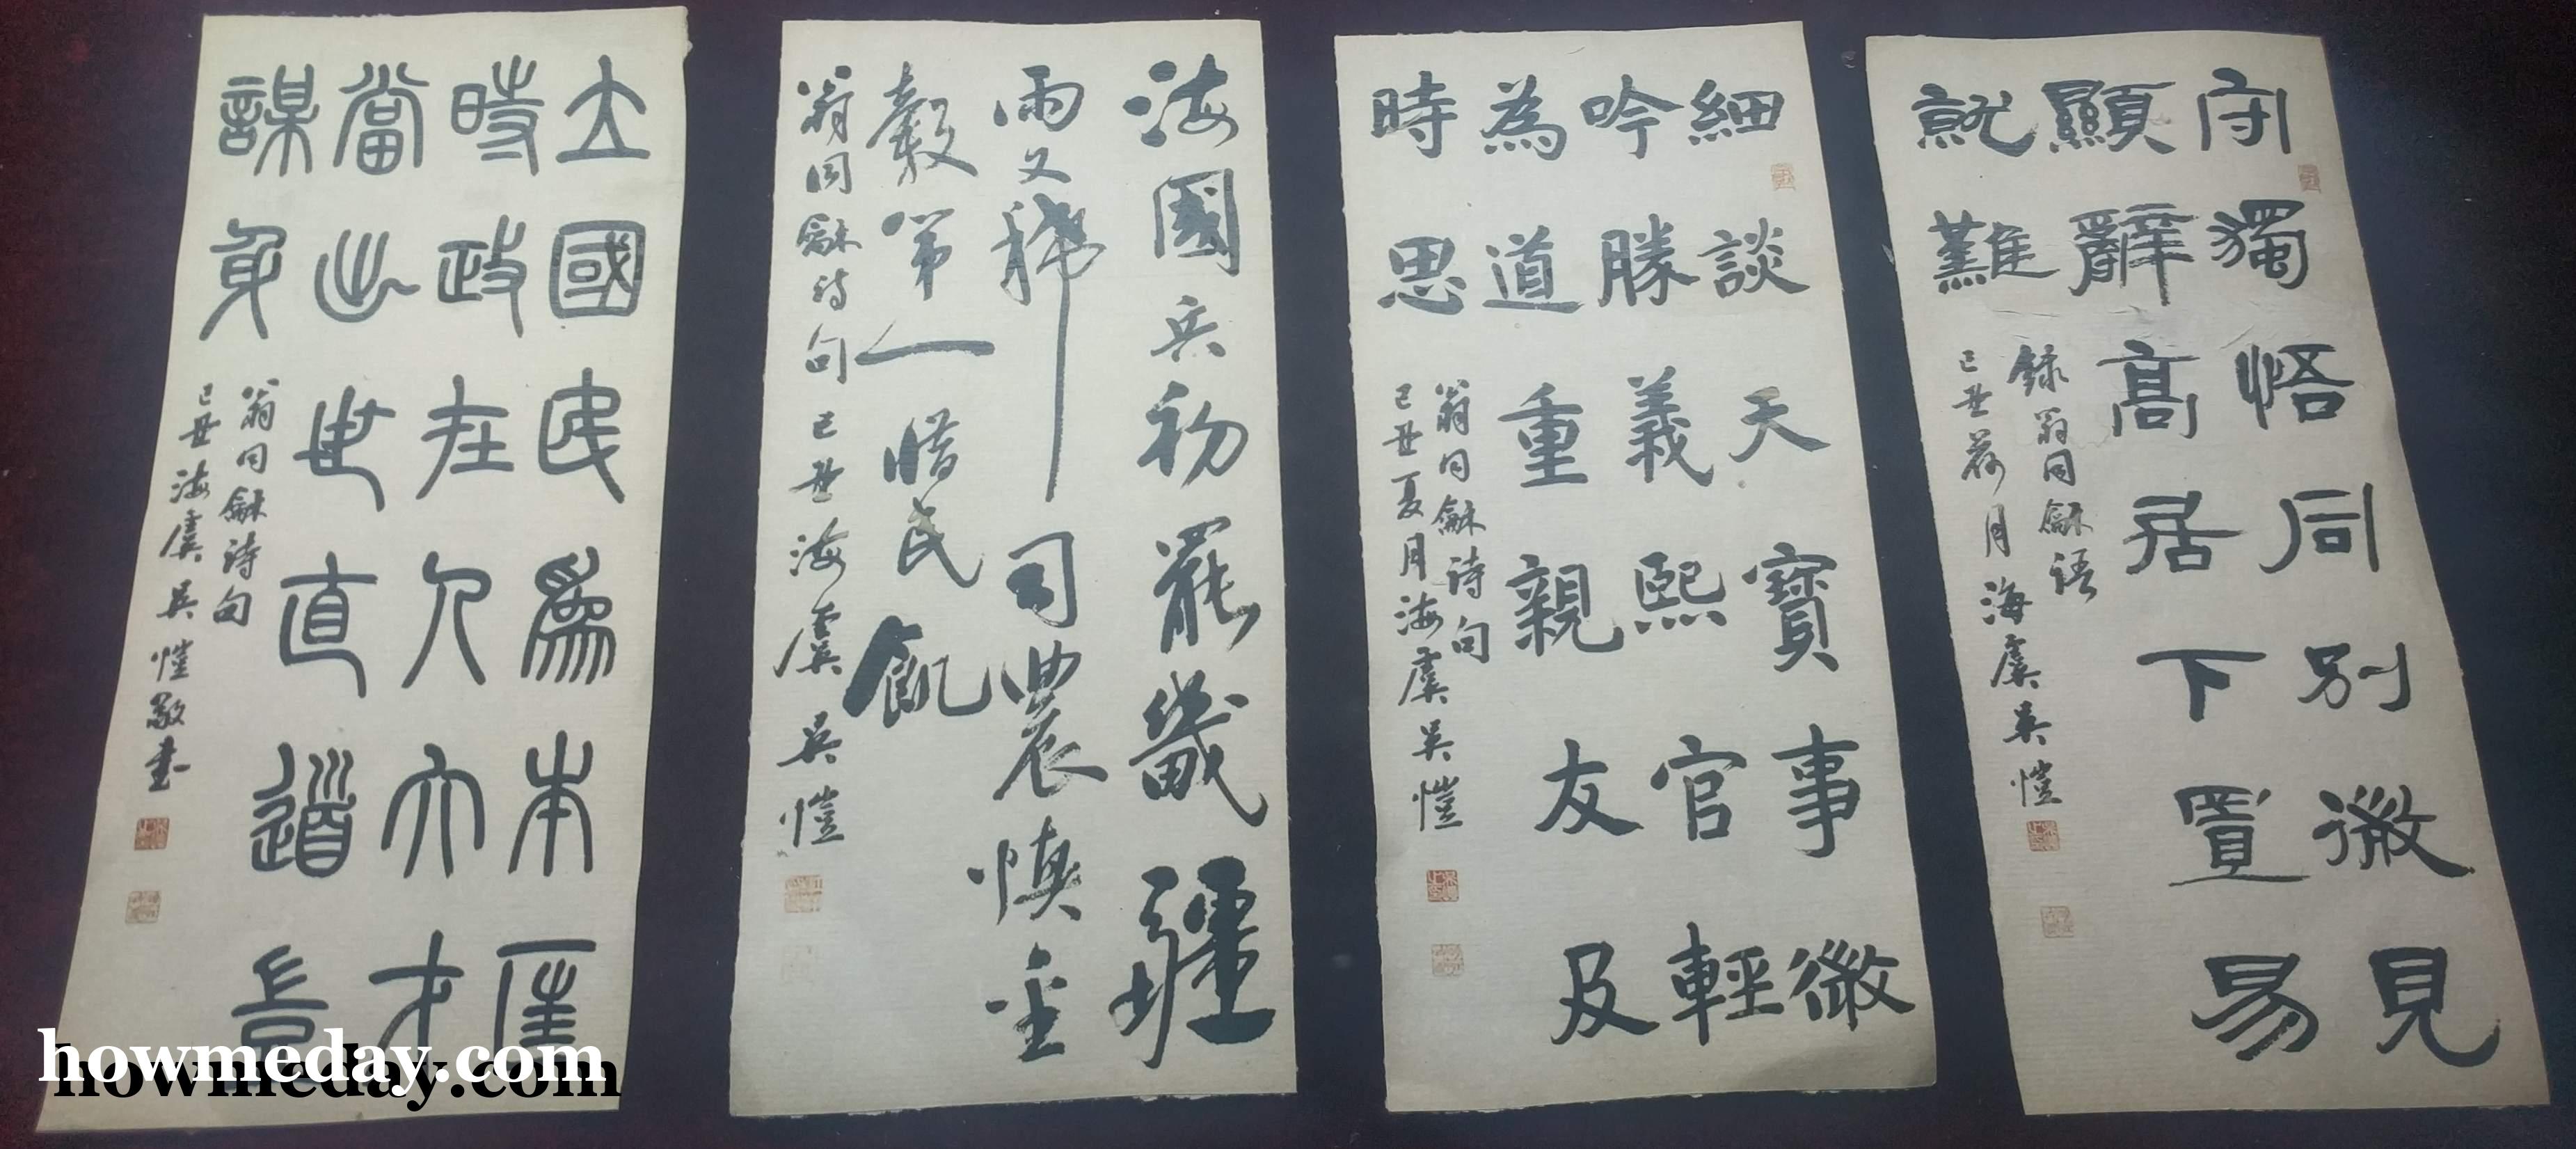 守獨悟同別微見
顯辭高居下置易
就難
錄翁同龢語
己丑荷月海虞吳愷
細談天寶事微
吟勝義熙官輕
為道重親友及
時思
翁同龢詩句
己丑夏月海虞吳愷
海國兵初罷畿疆
雨又稀司農慎金
穀第一惜民飢
翁同龢詩句己丑海虞吳愷
立國民為本匡
時政在人大才
當出世直道
謀身
翁同龢詩句
己丑海虞吳愷敬書
howmeday.com